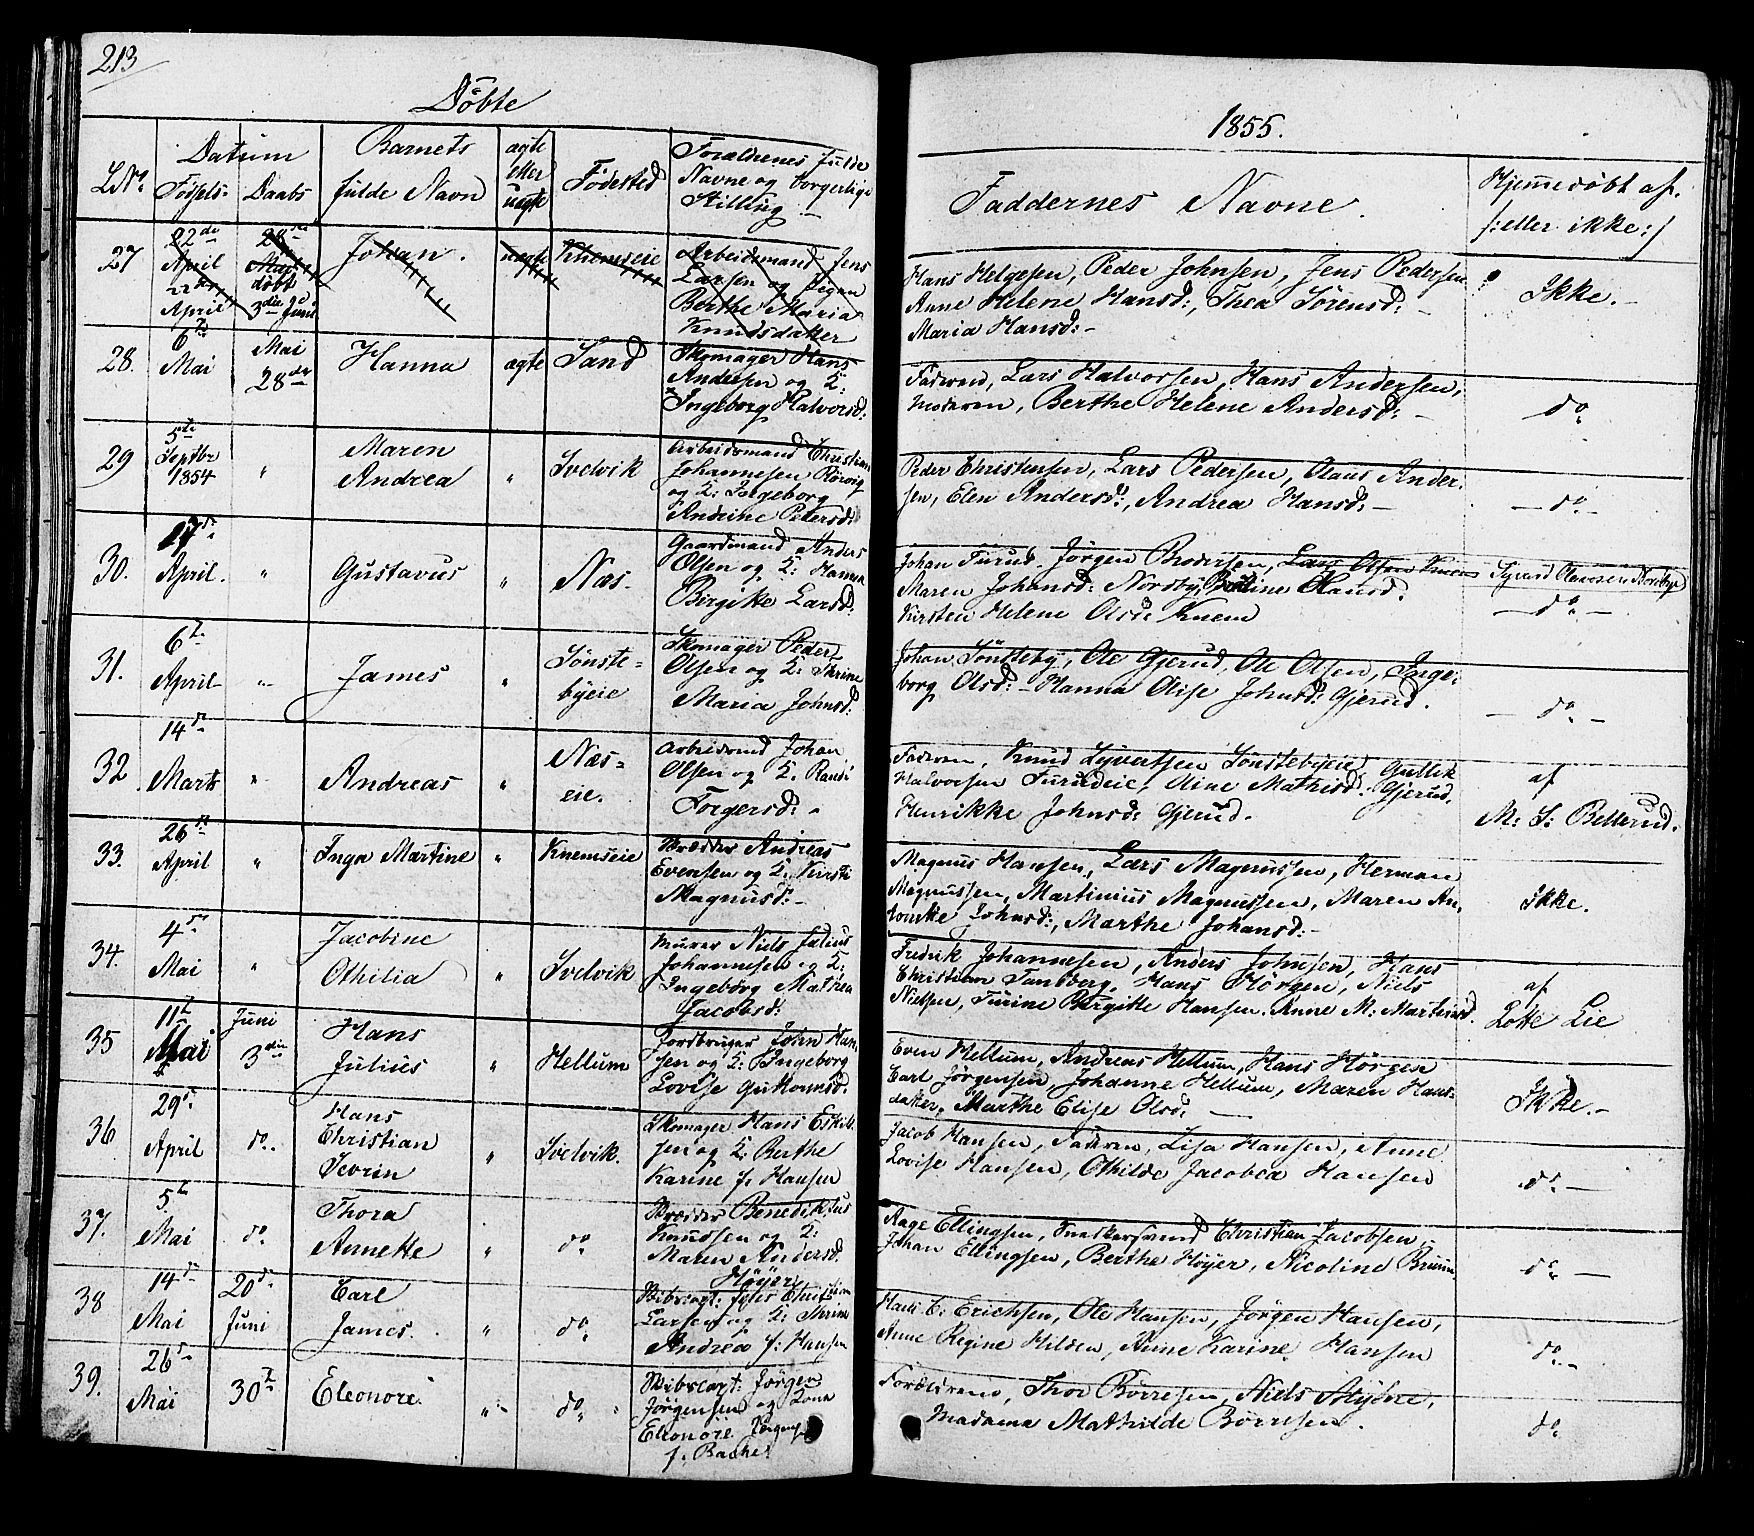 213
Döbte
1855.
L.No.
Datum
Föfsels-
Daabs
Barnets
fulde Navn
ægte
eller
uægte
Födested
Forældrenes fulde
Navne og borgerlige
Stilling
Faddernes Navne.
Hjemmedöbt af.
/:eller ikke:/
27
22de
April
22de
April
28de
Mai
döbt
3die Juni
Johan.
uægte
Knemseie
Arbeidsmand Jens
Larsen og Pigen
Berthe Maria
Knudsdatter
Hans Helgesen, Peder Johnsen, Jens Pedersen
Anne Helene Hansd:, Thea Sörensd:
Maria Hansd:-
Ikke.-
28.
6te
Mai
Mai
28de
Hanna
ægte
Sand
Skomager Hans
Andersen og K:
Ingeborg Halvorsd:
Faderen, Lars Halvorsen, Hans Andersen,
Moderen, Berthe Helene Andersd:-
do
29
5te
Septbr
1854
"
Maren
Andrea
"
Svelvik
Arbeidsmand Christian
Johannesen Rörvig
og K: Ingeborg
Andrine Petersd:
Peder Christensen, Lars Pedersen, Claus Ander-
sen, Elen Andersd:, Andrea Hansd:-
-do-
30.
27de
April.
"
Gustavus
"
Næs.
Gaardmand Anders
Olsen og K: Hanna
Birgitte Larsd:
Johan Turud. Jörgen Brodersen, Lars Olsen Knem
Maren Johansd: Nordby, Hansd.
Kirsten Helene Olsd: Knem
Olavesen Nordbye
-do-
31.
6te
April
"
James
"
Sönste-
byeie
Skomager Peder
Olsen og K: Thrine
Maria Johnsd:
Johan Sönsteby, Ole Gjerud, Ole Olsen, Inge-
borg Olsd:- Hanna Elise Johnsd: Gjerud.
-do-
32
14de
Marts
"
Andreas
"
Næs-
eie.
Arbeidsmd Johan
Olsen og K. Randi
Torgersd:-
Faderen, Knud Syvertsen Sönstebyeie, Gullik
Halvorsen Turudeie, Aline Mathisd: Gjerud,
Henrikke Johnsd: Gjerud.
af
M: S: Bellerud.
33.
26de
April
"
Inga Martine
"
Knemseie
Skrædder Andreas
Evensen og K: Kirsti
Magnusd:-
Magnus Hansen, Lars Magnussen, Herman
Magnussen, Martinius Magnussen, Maren An-
tonette Johnsd:, Marthe Johansd:-
Ikke.
34.
4de
Mai
"
Jacobine
Othilia
"
Svelvik
Murer Niels Julius
Johannesen og K:
Ingeborg Mathea
Jacobsd:
Fredrik Johannesen, Anders Johnsen, Hans
Christian Tandberg, Hans Hörgen, Niels
Nielsen, Turine Birgitte Hansen. Anne M: Martinsd.
af
Lotte Lie
35
11te
Mai
Juni
3die
Hans
Julius
"
Hellum
Jordbruger John Han-
sen og K: Ingeborg
Lovise Guttormsd.
Even Hellum, Andreas Hellum, Hans Hörgen
Carl Jörgensen, Johanne Hellum, Maren Hans-
datter, Marthe Elise Olsd:-
Ikke.-
36
29de
April
do.
Hans
Christian
Severin
"
Svelvik.
Skomager Hans Eskild-
sen og K. Berthe
Karine f. Hansen
Jacob Hansen, Faderen, Lisa Hansen, Anne
Lovise Hansen, Othilde Jacobea Hansen
do-
37.
5te
Mai
do.
Thora
Annette
"
do
Skrædder Benediktus
Knudsen og K:
Maren Andersd.
Höyer
Aage Ellingsen, Christian Jacobsen,
Johan Ellingsen, Berthe Höyer, Nicoline Bruun
do-
38
14de
Mai
20de
Juni
Carl
James.
"
do
Skibscapt: Jens Christian
Larsen og K: Thrine
Andrea f: Hansen
Hans C: Erichsen, Ole Hansen, Jörgen Hansen,
Anne Regine Hilden, Anne Karine Hansen
do-
39.
26de
Mai
30te
Eleonore
"
do
Skibscapt: Jörgen
Jörgensen og Kona
Eleonore
f. Bache
Forældrene, Thor Börresen, Niels
Madama Mathilde Börresen.
do